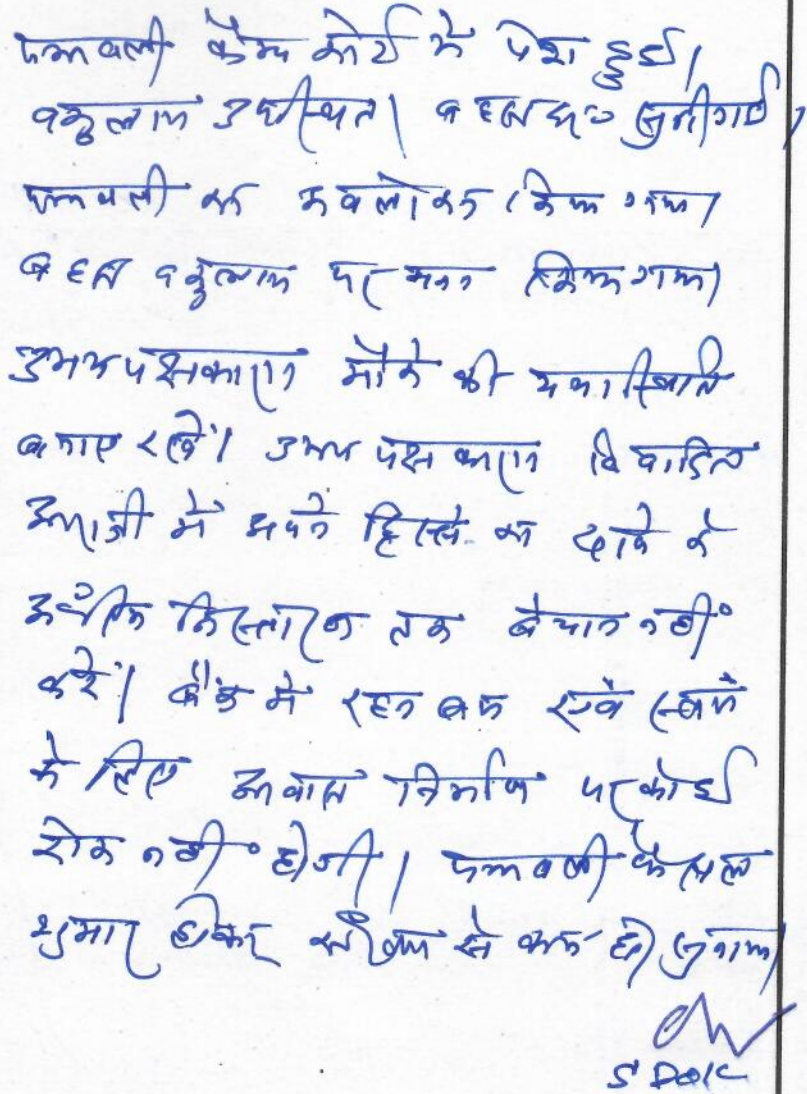 पत्रावली कैम्प कोर्ट में पेश हुई।
वकुलाय उपस्थित। बहस सुनी गई।
पत्रावली का अवलोकन किया गया।
बहस वकुलाय पर मनन किया गया।
उभय पक्षकारान मौके की यथास्थिति
बनाए रखें। उभय पक्षकारान विवादित
आराजी में अपने हिस्से का दावे के
अंतिम निस्तारण तक बेचान नहीं
करें। बैंक में रहन रखने स्वयं
के लिए आवास निर्माण पर कोई
रोक नहीं होगी। पत्रावली फैसल
शुमार होकर से कम हो।